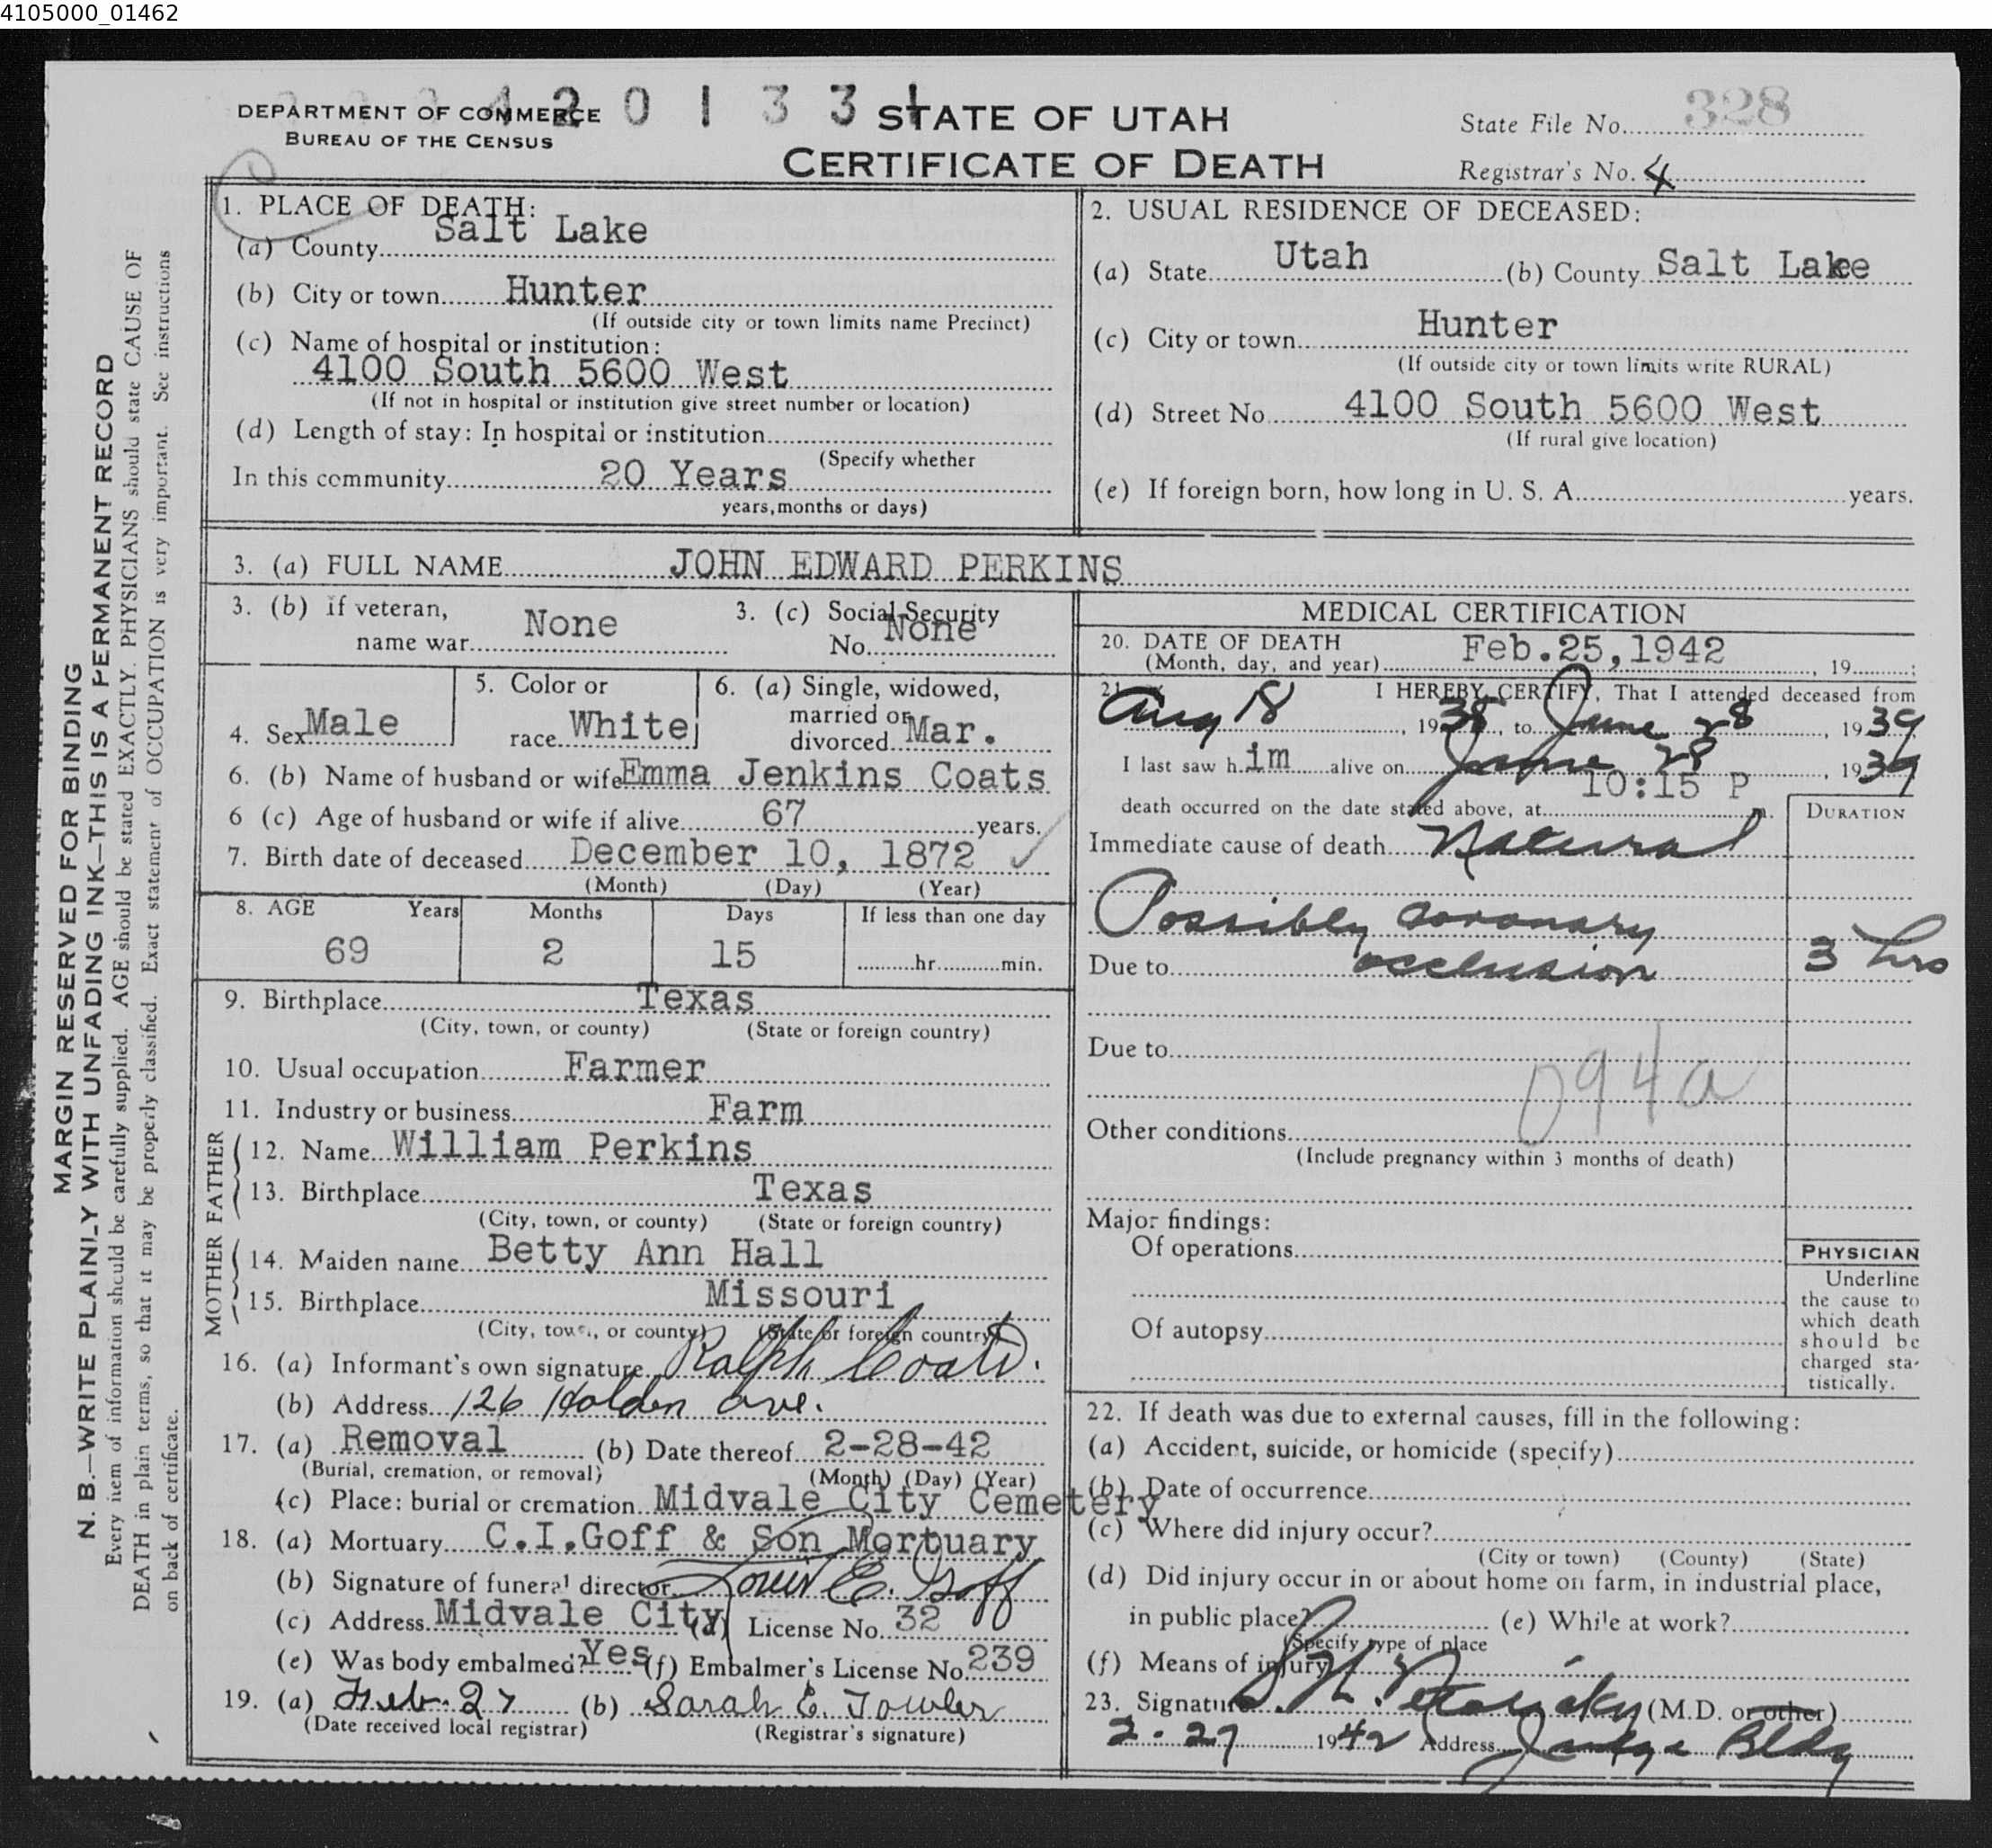 4105000_01462
DEPARTMENT OF COMMERCE
BUREAU OF THE CENSUS
4 2 0 1 3 3 1
STATE OF UTAH
CERTIFICATE OF DEATH
State File No. 328
Registrar's No. 4
MARGIN RESERVED FOR BINDING
N. B.—WRITE PLAINLY WITH UNFADING INK—THIS IS A PERMANENT RECORD
Every item of information should be carefully supplied. AGE should be stated EXACTLY. PHYSICIANS should state CAUSE OF
DEATH in plain terms, so that it may be properly classified. Exact statement of OCCUPATION is very important. See instructions
on back of certificate.
1. PLACE OF DEATH:
(a) County Salt Lake
(b) City or town Hunter
(If outside city or town limits name Precinct)
(c) Name of hospital or institution:
4100 South 5600 West
(If not in hospital or institution give street number or location)
(d) Length of stay: In hospital or institution
(Specify whether
In this community 20 Years
years, months or days)
2. USUAL RESIDENCE OF DECEASED:
(a) State Utah (b) County Salt Lake
(c) City or town Hunter
(If outside city or town limits write RURAL)
(d) Street No. 4100 South 5600 West
(If rural give location)
(e) If foreign born, how long in U. S. A. years.
3. (a) FULL NAME JOHN EDWARD PERKINS
3. (b) if veteran, name war None
3. (c) Social Security No. None
4. Sex Male
5. Color or race White
6. (a) Single, widowed, married or divorced Mar.
6. (b) Name of husband or wife Emma Jenkins Coats
6 (c) Age of husband or wife if alive 67 years.
7. Birth date of deceased December 10, 1872
(Month) (Day) (Year)
8. AGE Years Months Days If less than one day
69 2 15 hr. min.
9. Birthplace Texas
(City, town, or county) (State or foreign country)
10. Usual occupation Farmer
11. Industry or business Farm
FATHER
12. Name William Perkins
13. Birthplace Texas
(City, town, or county) (State or foreign country)
MOTHER
14. Maiden name Betty Ann Hall
15. Birthplace Missouri
(City, town, or county) (State or foreign country)
16. (a) Informant's own signature Ralph Coats.
(b) Address 126 Holden ave.
17. (a) Removal (b) Date thereof 2-28-42
(Burial, cremation, or removal) (Month) (Day) (Year)
(c) Place: burial or cremation Midvale City Cemetery
18. (a) Mortuary C.I.Goff & Son Mortuary
(b) Signature of funeral director Louis E. Goff
(c) Address Midvale City (d) License No. 32
(e) Was body embalmed? Yes (f) Embalmer's License No. 239
19. (a) Feb. 27 (b) Sarah E. Towler
(Date received local registrar) (Registrar's signature)
MEDICAL CERTIFICATION
20. DATE OF DEATH
(Month, day, and year) Feb.25,1942, 19 ;
21. I HEREBY CERTIFY, That I attended deceased from
Aug 18, 1938, to June 28, 1939
I last saw him alive on June 28, 1939
death occurred on the date stated above, at 10:15 P m.
DURATION
Immediate cause of death Natural
Possibly coronary
Due to occlusion 3 hrs
Due to
094a
Other conditions
(Include pregnancy within 3 months of death)
Major findings:
Of operations
Of autopsy
PHYSICIAN
Underline
the cause to
which death
should be
charged sta-
tistically.
22. If death was due to external causes, fill in the following:
(a) Accident, suicide, or homicide (specify)
(b) Date of occurrence
(c) Where did injury occur?
(City or town) (County) (State)
(d) Did injury occur in or about home on farm, in industrial place,
in public place? (e) While at work?
(Specify type of place
(f) Means of injury
23. Signature (M.D. or other)
2-27 1942 Address Judge Bldg